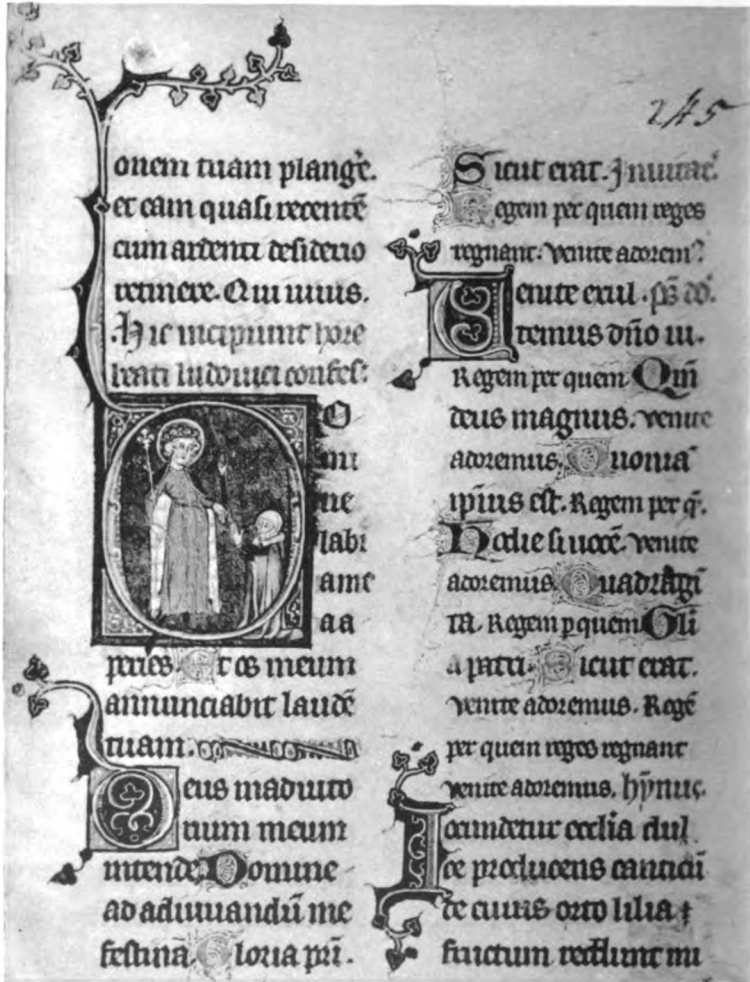 245
onem tuam plang̃e.
et eam quasi recentē
cum ardenti desiderio
retinere. Qui uiuis.
Hic incipiunt hore
beati ludouici confes:
DO
mi
ne
labi
ame
aa
peries. Et os meum
annunciabit laudē
tuam.
Deus madiuto
rium meum
intende. Domine
ad adiuuandū me
festina. Gloria pr̄i.
Sicut erat. Inuitat̄.
Regem per quem reges
regnant. venite adorem᷒
Uenite exul. ps̄ do.
temus dn̄o iu.
Regem per quem. Qm̄
deus magnus. venite
adoremus. Quonia᷒
ip̄ius est. Regem per q̄.
Hodie si uocē. venite
adoremus. Quadragī
ta. Regem ꝑ quem. Glī
a patri. Sicut erat.
venite adoremus. Regē
per quem reges regnant
venite adoremus. hȳnus.
Iocundetur ecc̄lia dul
ce producens canticū
de cuius orto lilia ⁊
fructum reddunt mi